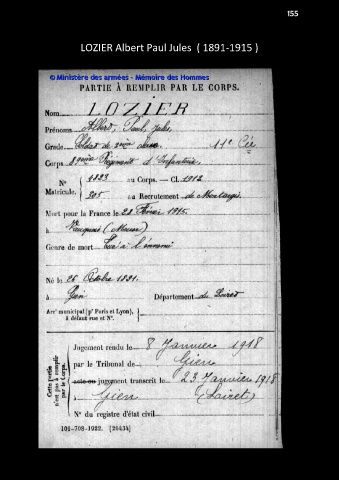 155
LOZIER Albert Paul Jules ( 1891-1915 )
© Ministère des armées - Mémoire des Hommes
PARTIE À REMPLIR PAR LE CORPS.
Nom LOZIER
Prénoms Albert, Paul, Jules,
Grade Soldat de 2ème classe 11e Cie
Corps 89ème Régiment d'Infanterie
N° 4823 au Corps. — Cl. 1912
Matricule. 305 au Recrutement de Montargis
Mort pour la France le 28 Février 1915
à Vauquois (Meuse)
Genre de mort Tué à l'ennemi
Né le 26 Octobre 1891
à Gien Département du Loiret
Arrt municipal (pr Paris et Lyon),
à défaut rue et N°.
Cette partie
n'est pas à remplir
par le Corps.
Jugement rendu le 8 Janvier 1918
par le Tribunal de Gien
acte ou jugement transcrit le 23 Janvier 1918
à Gien (Loiret)
N° du registre d'état civil
101-708-1922. [26434]